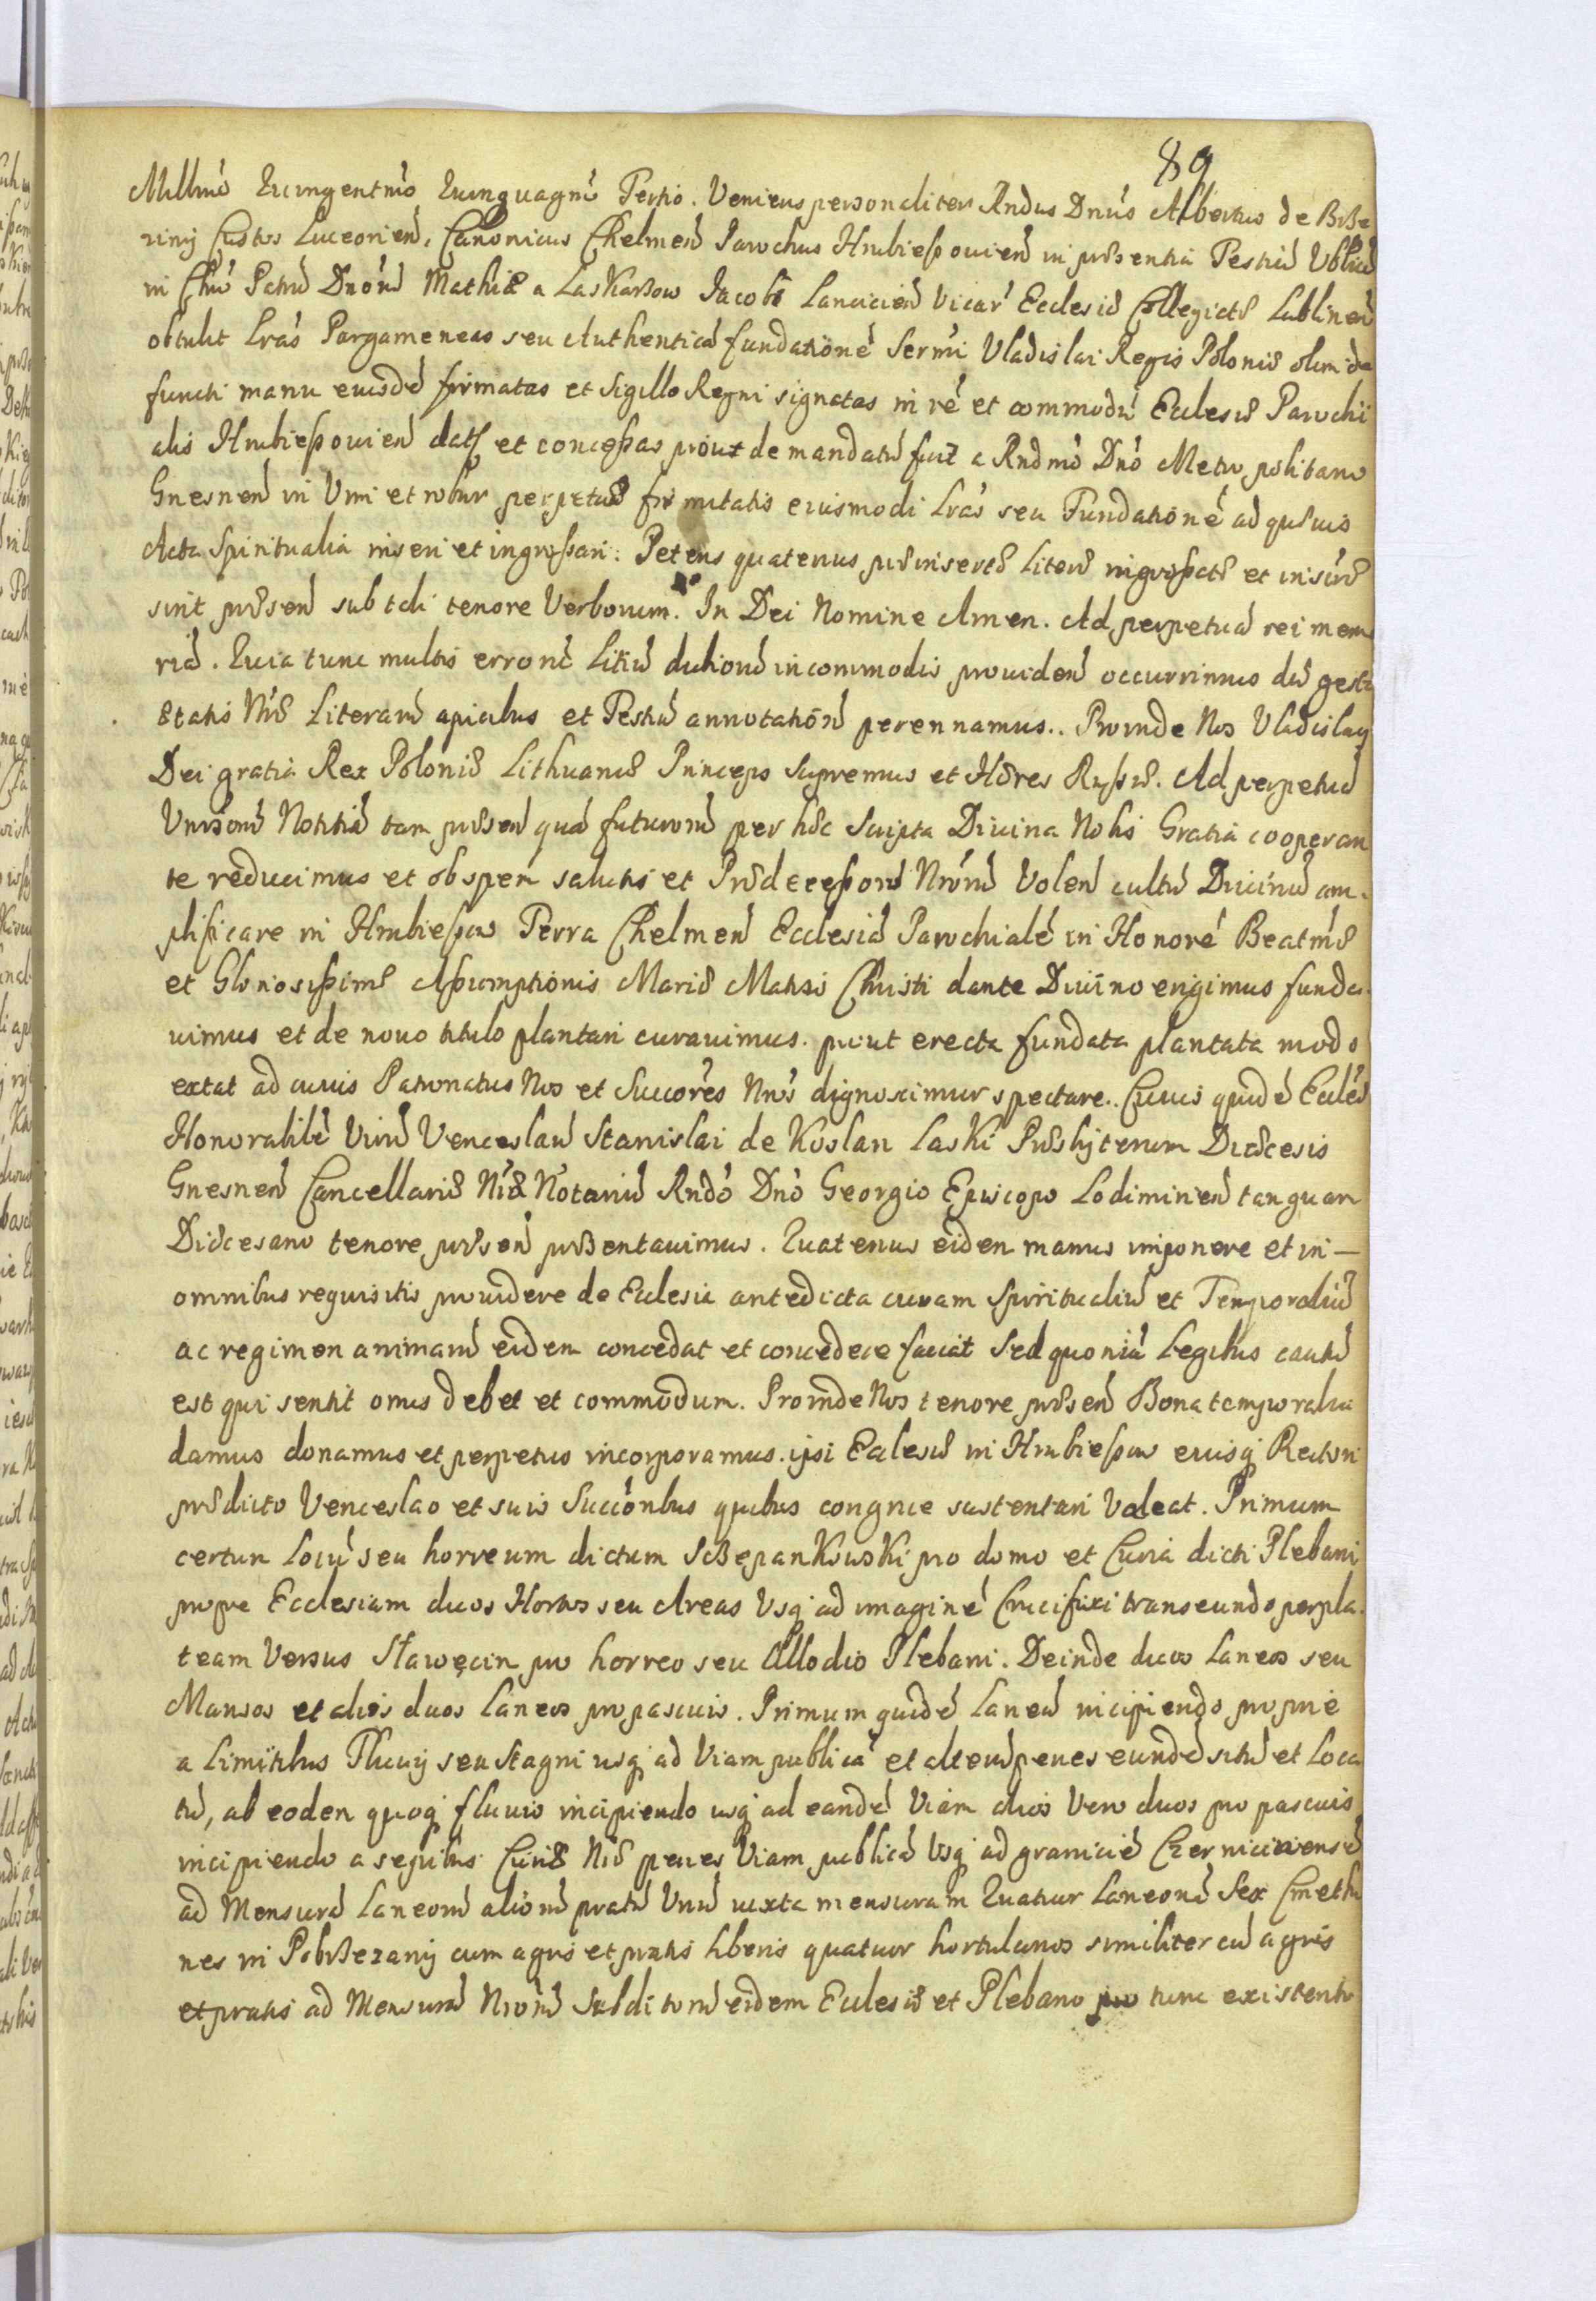 89
Millmo Quingentmo Quinquagmo Tertio. Veniens personaliter Rndus Dnus Albertus de Brze
ziny Custos Luceorien. Canonicus Chelmen Parochus Hrubieszovien in præsentia Testiu
in Chro Patru Dnoru Mathiæ a Laskarzow Jacobi Lancicien Vicar Ecclesiæ Collegiatæ Lublinen
obtulit Lras Pargameneas seu Authentica fundatione Sermi Vladislai Regis Poloniæ olim de
functi manu eiusde firmatas et Sigillo Regni signatas in re et commodu Ecclesiæ Parochi
alis Hrubieszovien datas et concessas prout demandatu fuit a Rndmo Dno Metropolitano
Gnesnen in Vim et robur perpetuæ firmitatis eiusmodi Lras seu Fundatione ad quævis
Acta Spiritualia inseri et ingrossari. Petens quatenus præinsertæ Literæ ingrossatæ et
sint præsen sub tali tenore Verborum. In Dei Nomine Amen. Ad perpetua rei memo
ria. Quia tunc multis erroru Litiu dubioru incommodis providen occurrimus du gesta
ætatis Nræ Literaru apicibus et Testiu annotatione perennamus.. Proinde Nos Vladislaus
Dei gratia Rex Poloniæ Lithuaniæ Princeps Supremus et Hæres Russiæ. Ad perpetua
Vnivsoru Notitia tam præsen qua futuroru per hæc Scripta Divina Nobis Gratia cooperan
te reducimus et ob spem salutis et Prædecessoru Nroru Volen cultu Divinu am-
plificare in Hrubieszow Terra Chelmen Ecclesia Parochiale in Honore Beatmæ
et Gloriosissimæ Assumptionis Mariæ Matris Christi dante Divino erigimus funda-
uimus et de nouo titulo plantari curauimus. prout erecta fundata plantata modo
extat ad cuius Patronatus Nos et Succores Nros dignoscimur spectare.. Cuius quide Ecclesia
Honorabile Viru Venceslau Stanislai de Koslan Laski Præsbyterum Diæcesis
Gnesnen Cancellariæ Nræ Notariu Rndo Dno Georgio Episcopo Lodimirien tanquam
Diæcesano tenore præsen præsentauimus. Quatenus eidem manus imponere et in—
omnibus requisitis prouidere de Ecclesia antedicta curam Spiritualiu et Temporaliu
ac regimen animaru eidem concedat et concedere faciat Sed quonia Legibus cautu
est qui sentit onus debet et commodum. Proinde Nos tenore præsen Bona temporalia
damus donamus et perpetuo incorporamus. ipsi Ecclesiæ in Hrubieszow eiusq Rectori
prædicto Venceslao et suis Succoribus quibus congrue sustentari Valeat. Primum
certum Locu seu horreum dictum Szczepankowski pro domo et Curia dicti Plebani
prope Ecclesiam duos Hortos seu Areas Vsq ad imagine Crucifixi transeundo per pla-
team Versus Sławęcin pro horreo seu Allodio Plebani. Deinde duos Laneos seu
Mansos et alios duos Laneos pro pascuis. Primum quide Laneu incipiendo proprie
a Limitibus Fluuij seu Stagni usq ad Viam publica et alteru penes eunde situ et Loca
tu, ab eodem quoq fluuio incipiendo usq ad eande Viam alios Vero duos pro pascuis
incipiendo a sepibus Curiæ Nræ penes Viam publica Vsq ad granicie Czerniciniense
ad Mensura Laneoru alioru pratu Vnu iuxta mensuram Quatuor Laneoru Sex Cmetho
nes in Pobrzezany cum agris et pratis liberis quatuor hortulanos similiter cu agris
et pratis ad Mensura Nroru Subditoru eidem Ecclesiæ et Plebano pro tunc existenti